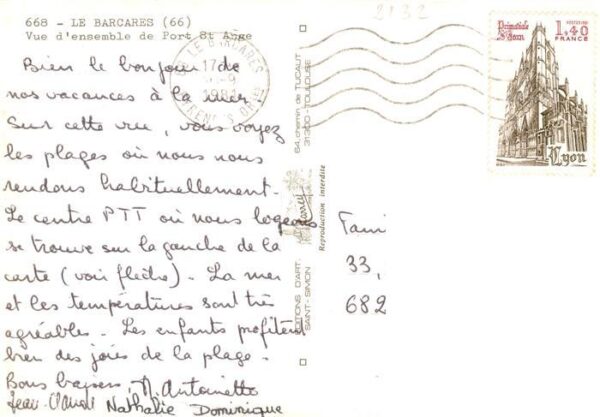 668 - LE BARCARES (66)
Vue d'ensemble de Port St Ange
2132
LE BARCARES
17
1981
Bien le bonjour de
nos vacances à la mer
Sur cette vue, vous voyez
les plages où nous nous
rendons habituellement.
Le centre PTT où nous logeons
se trouve sur la gauche de la
carte (voir flèche). La mer
et les températures sont très
agréables. Les enfants profitent
bien des joies de la plage.
Bons baisers, M. Antoinette
Jean-Claude Nathalie Dominique
64, chemin de TUCAUT
31300 - TOULOUSE
Reproduction interdite
EDITIONS D'ART
SAINT-SIMON
Primatiale
St Jean
1,40
FRANCE
Lyon
33,
682